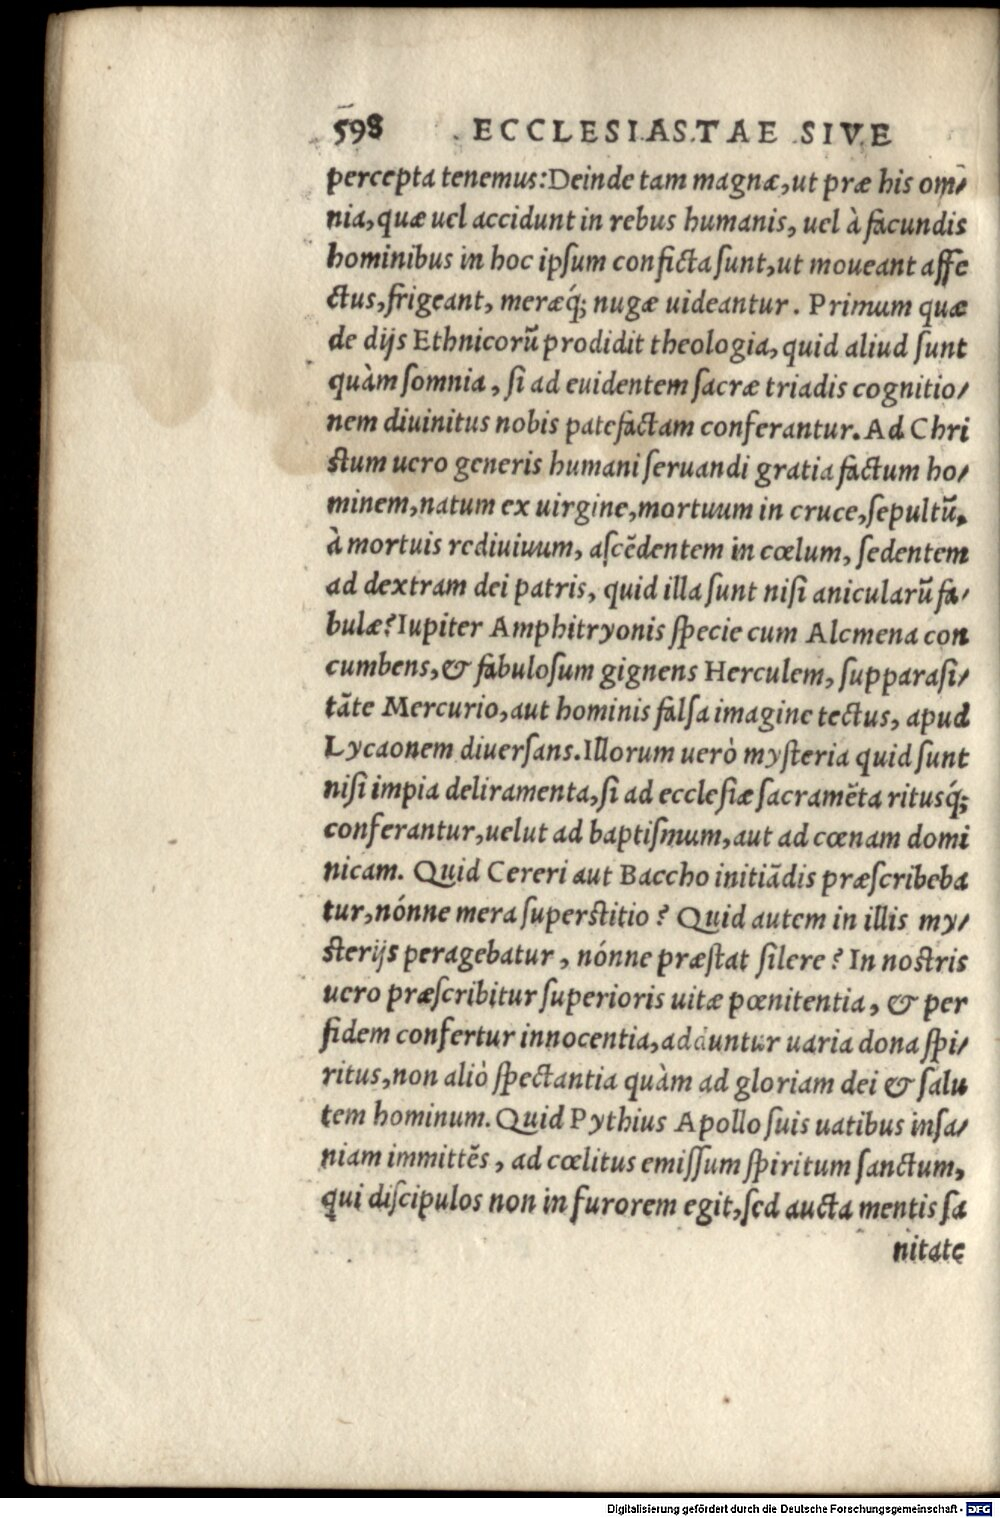 598 ECCLESIASTAE SIVE
percepta tenemus: Deinde tam magnæ, ut præ his om⸗
nia, quæ uel accidunt in rebus humanis, uel à facundis
hominibus in hoc ipſum conficta ſunt, ut moueant affe
ctus, frigeant, meræq́; nugæ uideantur. Primum quæ
de dijs Ethnicorũ prodidit theologia, quid aliud ſunt
quàm ſomnia, ſi ad euidentem ſacræ triadis cognitio⸗
nem diuinitus nobis patefactam conferantur. Ad Chri
ſtum uero generis humani ſeruandi gratia factum ho⸗
minem, natum ex uirgine, mortuum in cruce, ſepultũ,
à mortuis rediuiuum, aſcẽdentem in cœlum, ſedentem
ad dextram dei patris, quid illa ſunt niſi anicularũ fa⸗
bulæ? Iupiter Amphitryonis ſpecie cum Alcmena con
cumbens, & fabuloſum gignens Herculem, ſupparaſi⸗
tãte Mercurio, aut hominis falſa imagine tectus, apud
Lycaonem diuerſans. Illorum uerò myſteria quid ſunt
niſi impia deliramenta, ſi ad eccleſiæ ſacramẽta ritusq́;
conferantur, uelut ad baptiſmum, aut ad cœnam domi
nicam. Quid Cereri aut Baccho initiãdis præſcribeba
tur, nónne mera ſuperſtitio? Quid autem in illis my⸗
ſterijs peragebatur, nónne præſtat ſilere? In noſtris
uero præſcribitur ſuperioris uitæ pœnitentia, & per
fidem confertur innocentia, adduntur uaria dona ſpi⸗
ritus, non aliò ſpectantia quàm ad gloriam dei & ſalu
tem hominum. Quid Pythius Apollo ſuis uatibus inſa⸗
niam immittẽs, ad cœlitus emiſſum ſpiritum ſanctum,
qui diſcipulos non in furorem egit, ſed aucta mentis ſa
nitate
Digitalisierung gefördert durch die Deutsche Forschungsgemeinschaft - DFG